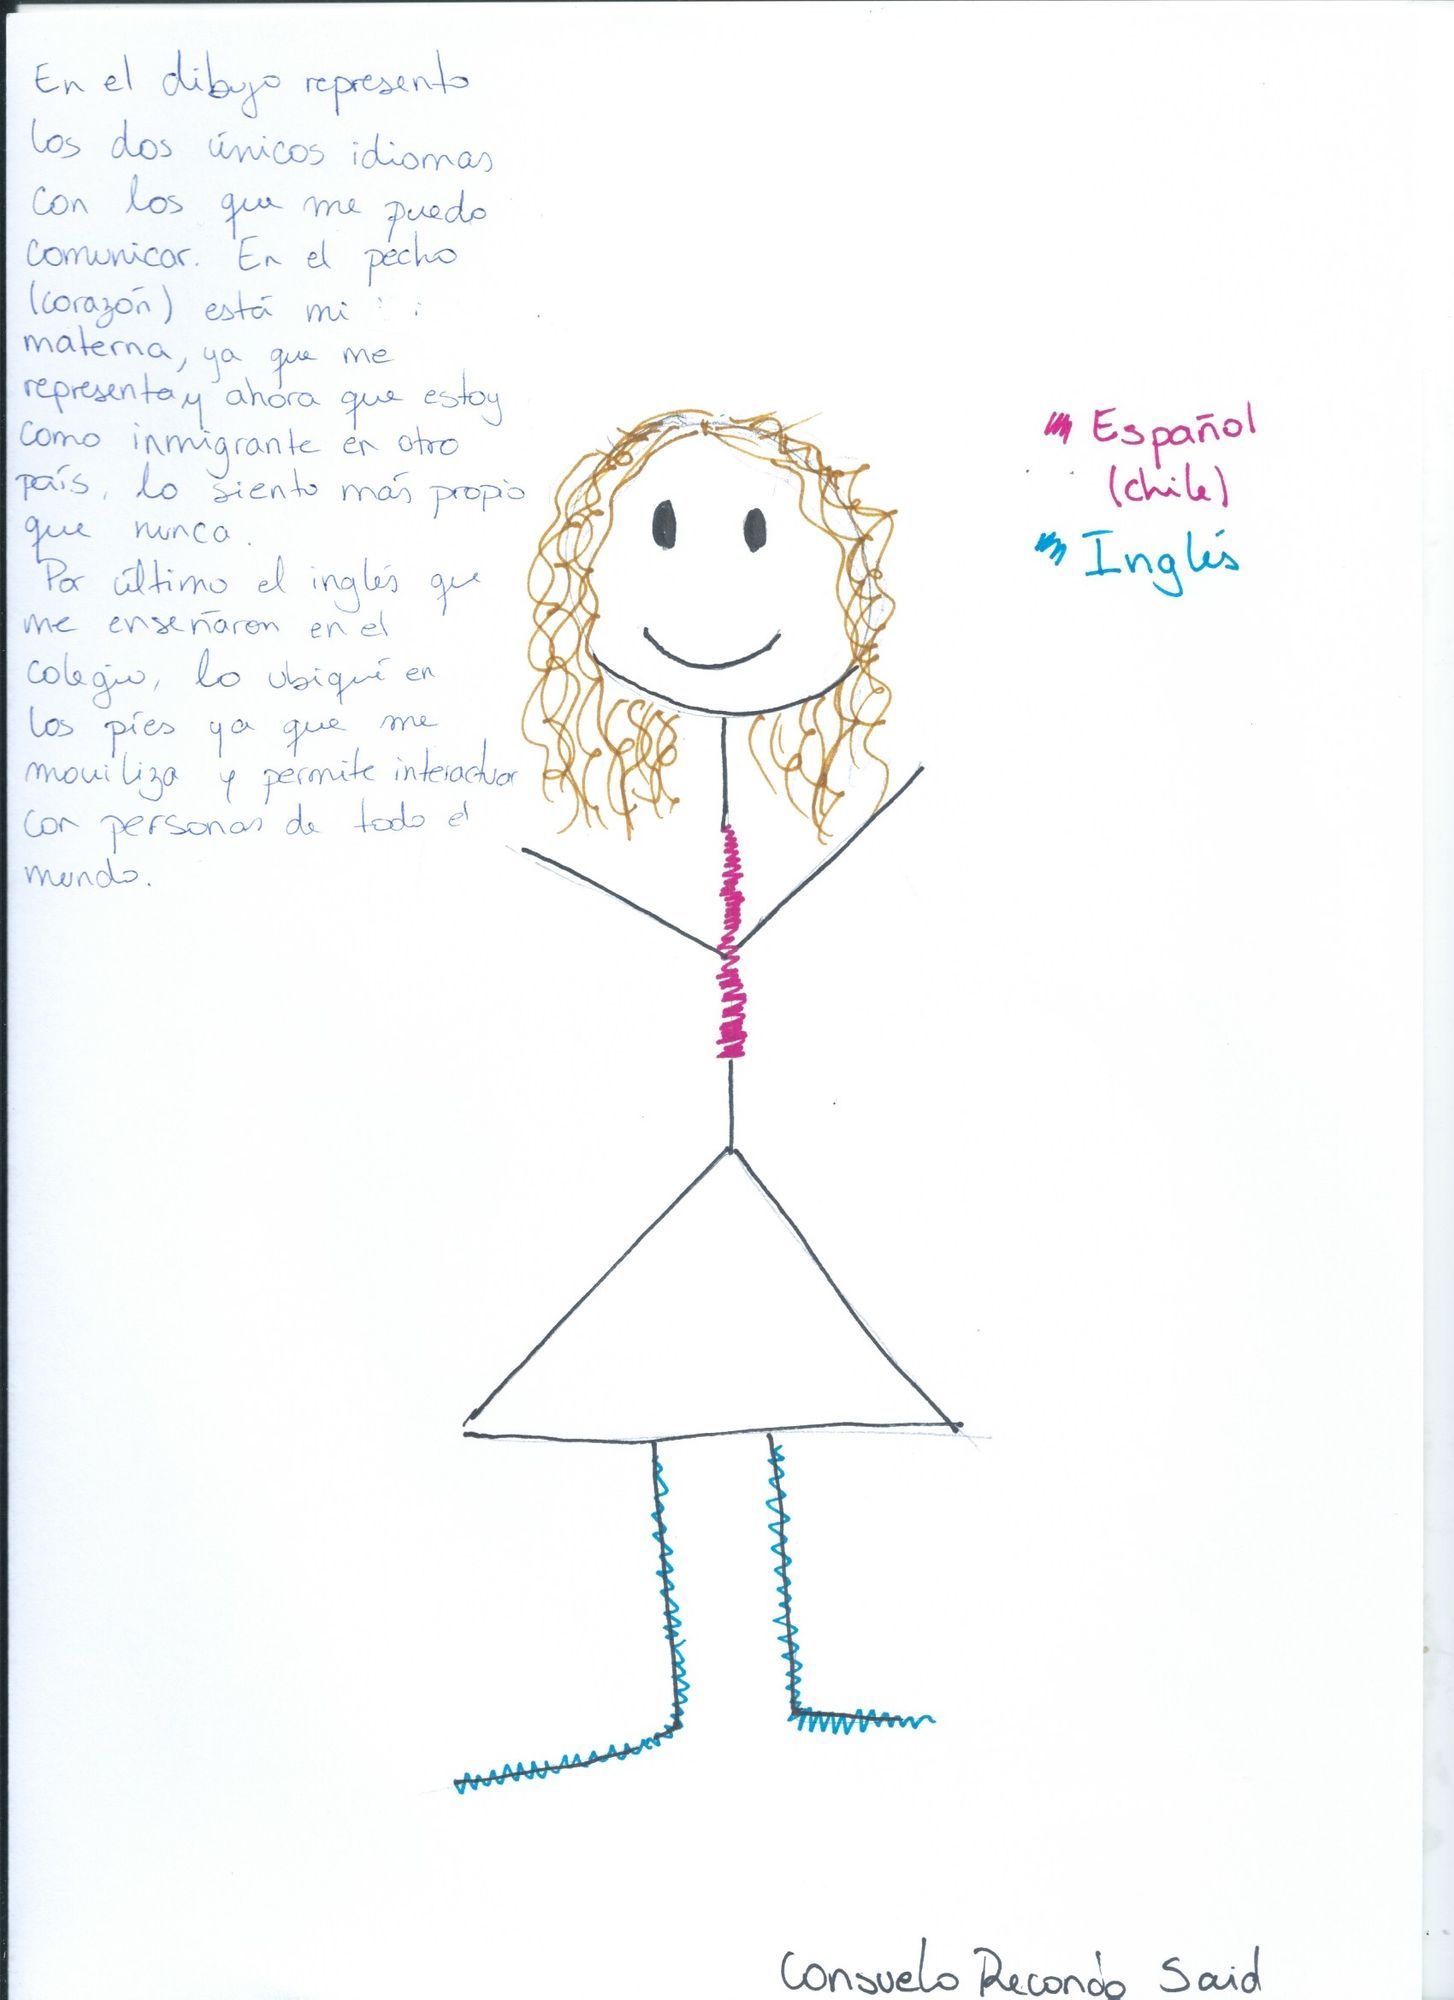 En el dibujo represento
los dos únicos idiomas
con los que me puedo
comunicar. En el pecho
(corazón) está mi
materna, ya que me
representa y ahora que estoy
como inmigrante en otro
país, lo siento más propio
que nunca.
Por último el inglés que
me enseñaron en el
colegio, lo ubiqué en
los píes ya que me
moviliza y permite interactuar
con personas de todo el
mundo.
Español
(Chile)
Inglés
Consuelo Recondo Said